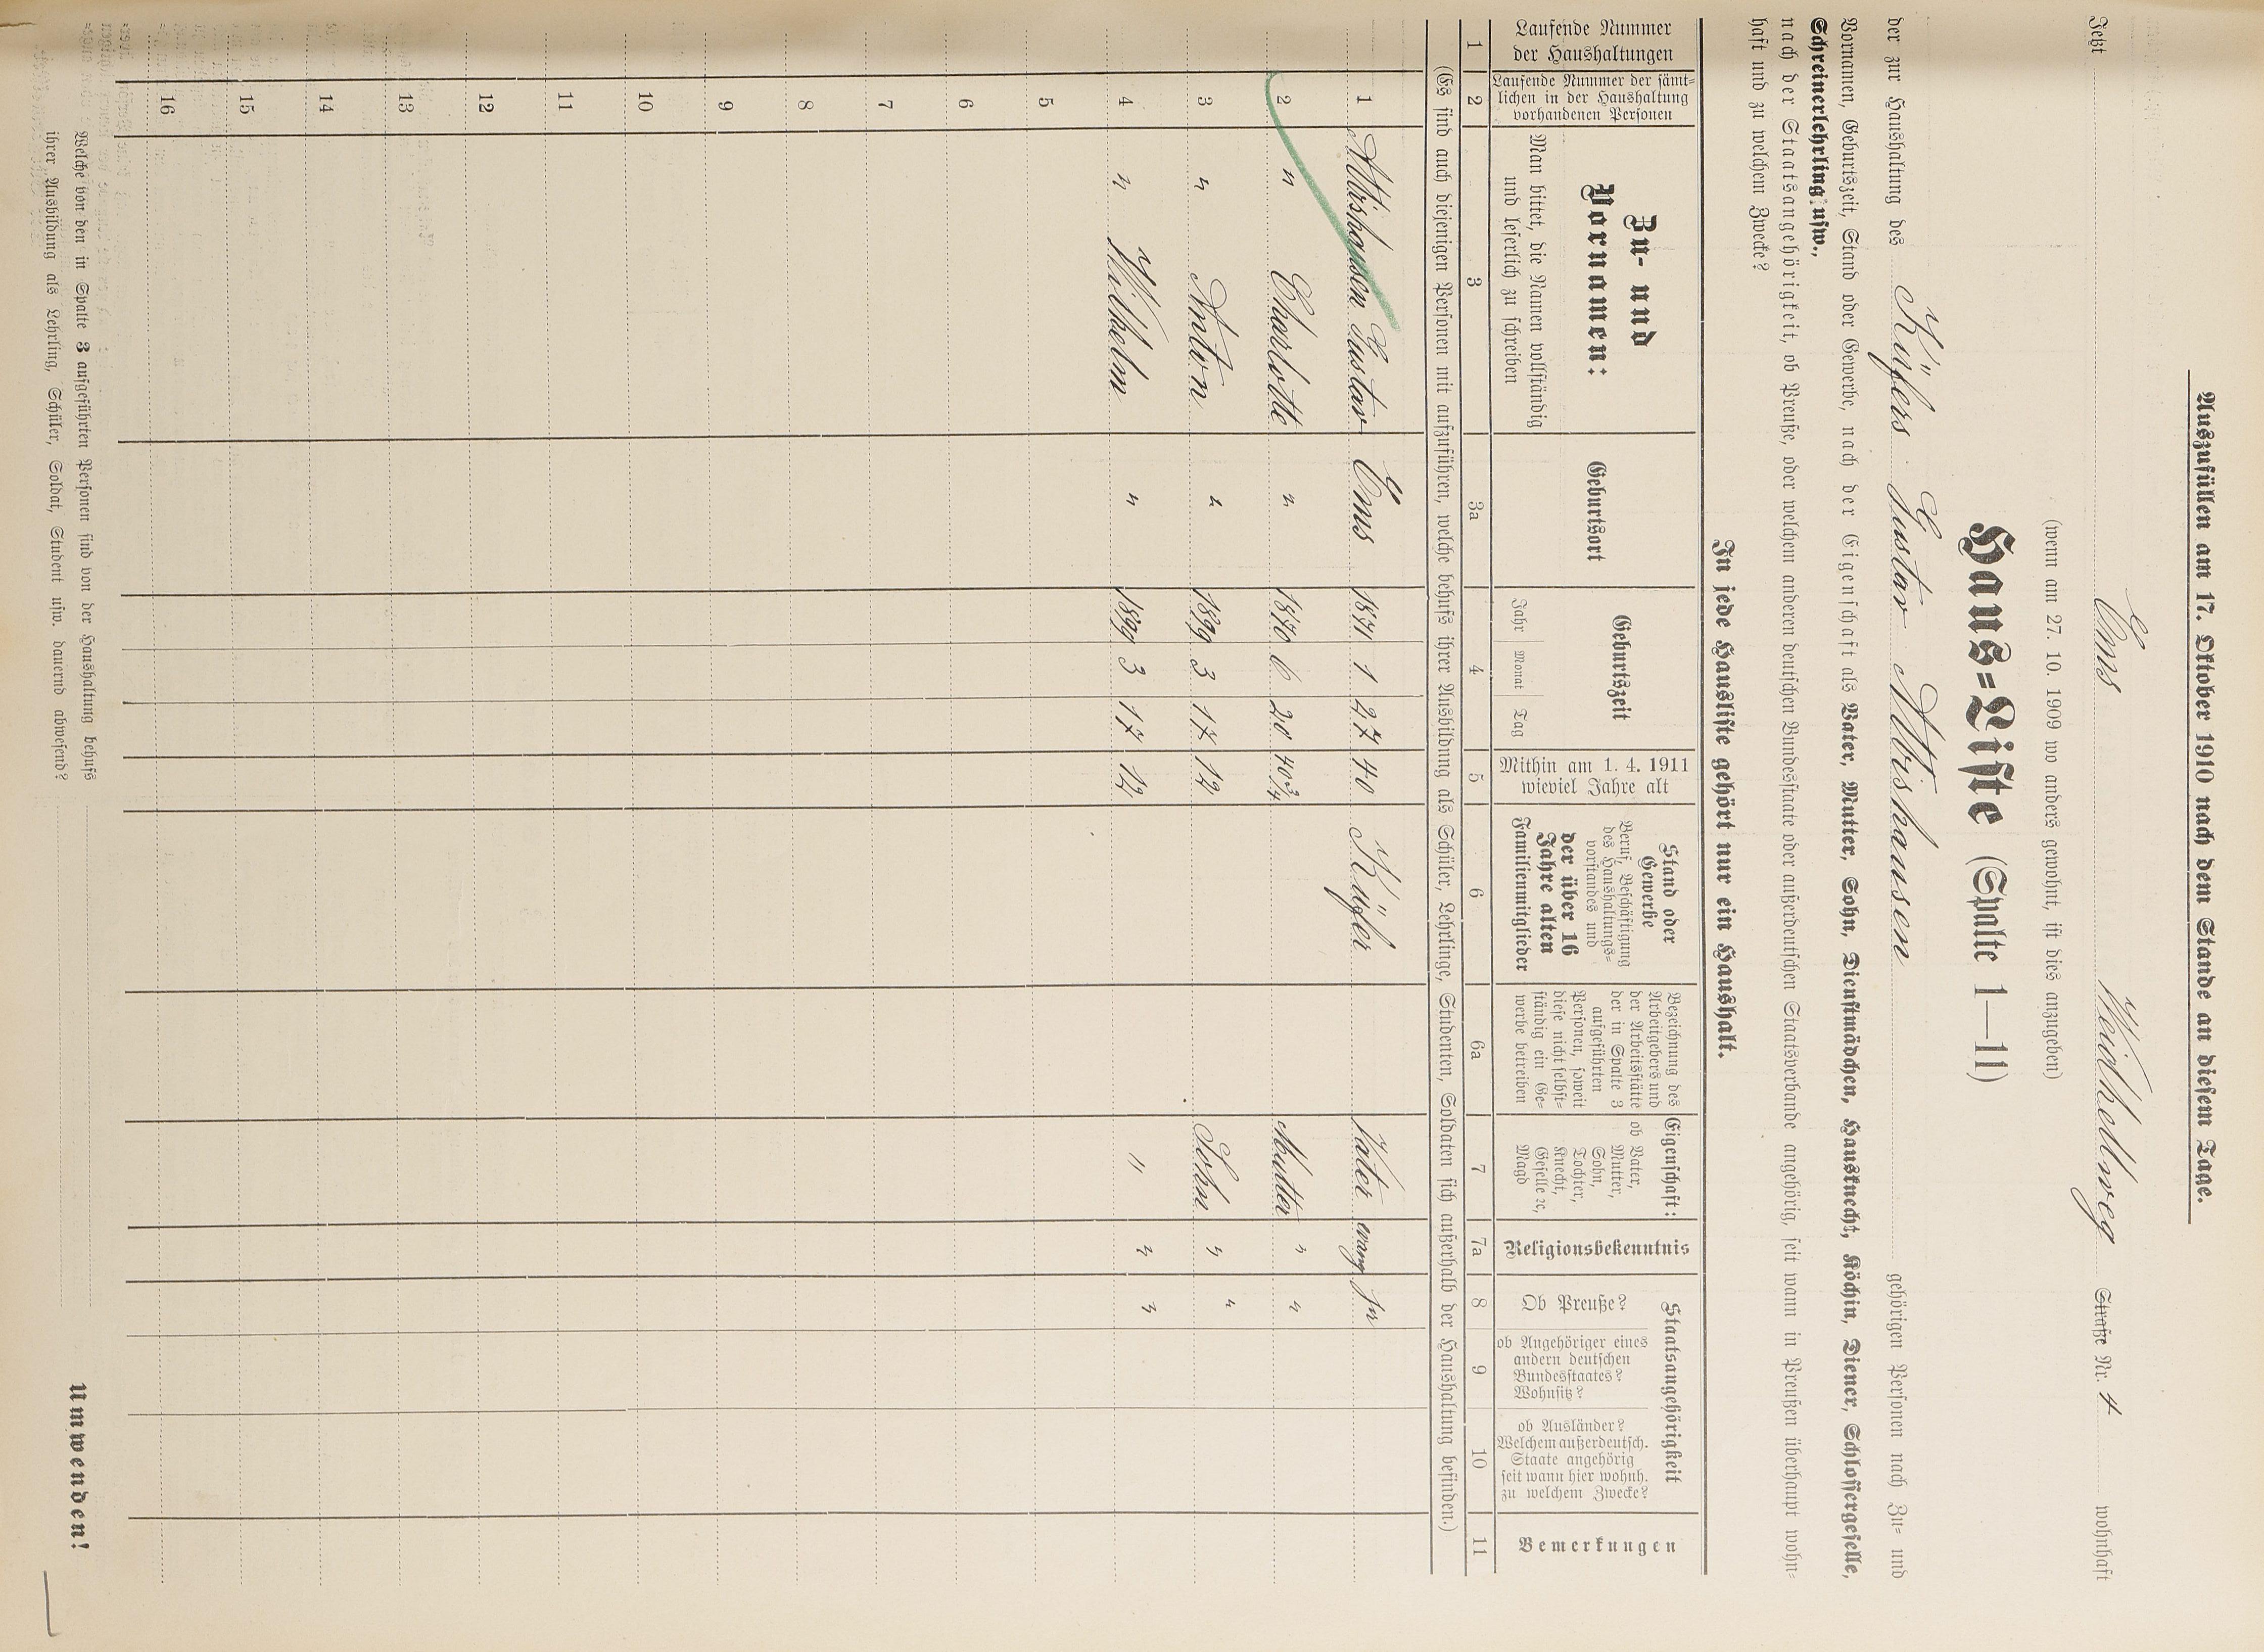 Auszufüllen am 17. Oktober 1910 nach dem Stande an diesem Tage.
Jetzt Ems Weidhellweg Straße Nr. 4 wohnhaft
(wenn am 27. 10. 1909 wo anders gewohnt, ist dies anzugeben)
Haus=Liste (Spalte 1—11)
der zur Haushaltung des Küfers Gustav Abishausen gehörigen Personen nach Zu= und
Vornamen, Geburtszeit, Stand oder Gewerbe, nach der Eigenschaft als Vater, Mutter, Sohn, Dienstmädchen, Hausknecht, Köchin, Diener, Schlossergeselle,
Schreinerlehrling usw.,
nach der Staatsangehörigkeit, ob Preuße, oder welchem anderen deutschen Bundesstaate oder außerdeutschen Staatsverbande angehörig, seit wann in Preußen überhaupt wohn=
haft und zu welchem Zwecke?
In jede Hausliste gehört nur ein Haushalt.
Laufende Nummer
der Haushaltungen
Laufende Nummer der sämt=
lichen in der Haushaltung
vorhandenen Personen
Zu- und
Vornamen:
Man bittet, die Namen vollständig
und leserlich zu schreiben
Geburtsort
Geburtszeit
Jahr Monat Tag
Mithin am 1. 4. 1911
wieviel Jahre alt
Stand oder
Gewerbe
Beruf, Beschäftigung
des Haushaltungs=
vorstandes und
der über 16
Jahre alten
Familienmitglieder
Bezeichnung des
Arbeitgebers und
der Arbeitsstätte
der in Spalte 3
aufgeführten
Personen, soweit
diese nicht selbst=
ständig ein Ge=
werbe betreiben
Eigenschaft:
ob Vater,
Mutter,
Sohn,
Tochter,
Knecht,
Geselle ꝛc,
Magd
Religionsbekenntnis
Staatsangehörigkeit
Ob Preuße?
ob Angehöriger eines
andern deutschen
Bundesstaates?
Wohnsitz?
ob Ausländer?
Welchem außerdeutsch.
Staate angehörig
seit wann hier wohnh.
zu welchem Zwecke?
Bemerkungen
1 2 3 3a 4 5 6 6a 7 7a 8 9 10 11
(Es sind auch diejenigen Personen mit aufzuführen, welche behufs ihrer Ausbildung als Schüler, Lehrlinge, Studenten, Soldaten sich außerhalb der Haushaltung befinden.)
1 Abishausen Gustav Ems 1871 1 27 40 Küfer Vater evang. Ja
2 " Charlotte " 1870 6 20 40¾ Mutter " "
3 " Anton " 1899 3 17 12 Sohn " "
4 " Wilhelm " 1899 3 17 12 " " "
5
6
7
8
9
10
11
12
13
14
15
16
Welche von den in Spalte 3 aufgeführten Personen sind von der Haushaltung behufs
ihrer Ausbildung als Lehrling, Schüler, Soldat, Student usw. dauernd abwesend?
Umwenden!